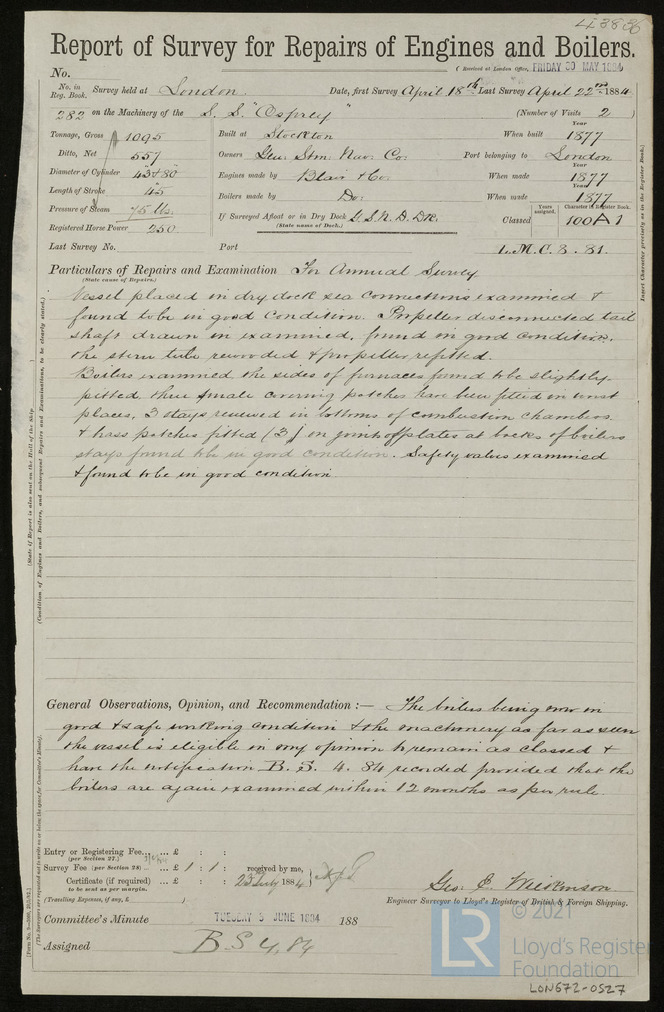 Report of Survey for Repairs of Engines and Boilers.
No. (Received at London Office, FRIDAY 30 MAY 1884
No. in Reg. Book. Survey held at London Date, first Survey April 18th Last Survey April 22nd 1884
282 on the Machinery of the S. S. "Osprey" (Number of Visits 2 )
Tonnage, Gross 1095 Built at Stockton When built Year 1877
Ditto, Net 557 Owners Gen. Stm. Nav. Co. Port belonging to London
Diameter of Cylinder 43 & 80 Engines made by Blair & Co. When made Year 1877
Length of Stroke 45 Boilers made by Do. When made Year 1877
Pressure of Steam 75 lbs. If Surveyed Afloat or in Dry Dock G.S.N.D. Dk. Classed Years assigned. Character in Register Book. 100A1
Registered Horse Power 250 (State name of Dock.)
Last Survey No. Port L.M.C. 8. 81.
Particulars of Repairs and Examination For Annual Survey
(State cause of Repairs.)
Vessel placed in dry dock sea connections examined &
found to be in good condition. Propeller disconnected tail
shaft drawn in examined, found in good condition.
the stern tube rewooded & propeller refitted.
Boilers examined the sides of furnaces found to be slightly
pitted, three small covering patches have been fitted on worst
places, 3 stays renewed in bottoms of combustion chambers
& patches fitted (3) on joints of plates at backs of boilers
stays found to be in good condition. Safety valves examined
& found to be in good condition
General Observations, Opinion, and Recommendation :— The boilers being now in
good & safe working condition & the machinery as far as seen
the vessel is eligible in my opinion to remain as classed &
have the notification B. S. 4. 84 recorded provided that the
boilers are again examined within 12 months as per rule.
Entry or Registering Fee... ... £ : :
(per Section 27.)
Survey Fee (per Section 28) ... ... £ 1 : 1 : received by me,
Certificate (if required) ... £ : : 23 July 1884
to be sent as per margin.
(Travelling Expenses, if any, £ )
Geo. E.
Engineer Surveyor to Lloyd's Register of British & Foreign Shipping.
Committee's Minute TUESDAY 3 JUNE 1884 188
Assigned B S 4. 84
(State if Report is also sent on the Hull of the Ship.
(Condition of Engines and Boilers, and subsequent Repairs and Examinations, to be clearly stated.)
(The Surveyors are requested not to write on or below the space for Committee's Minute).
Insert Character precisely as in the Register Book.
© 2021
LR Lloyd's Register
Foundation
LON672-0527